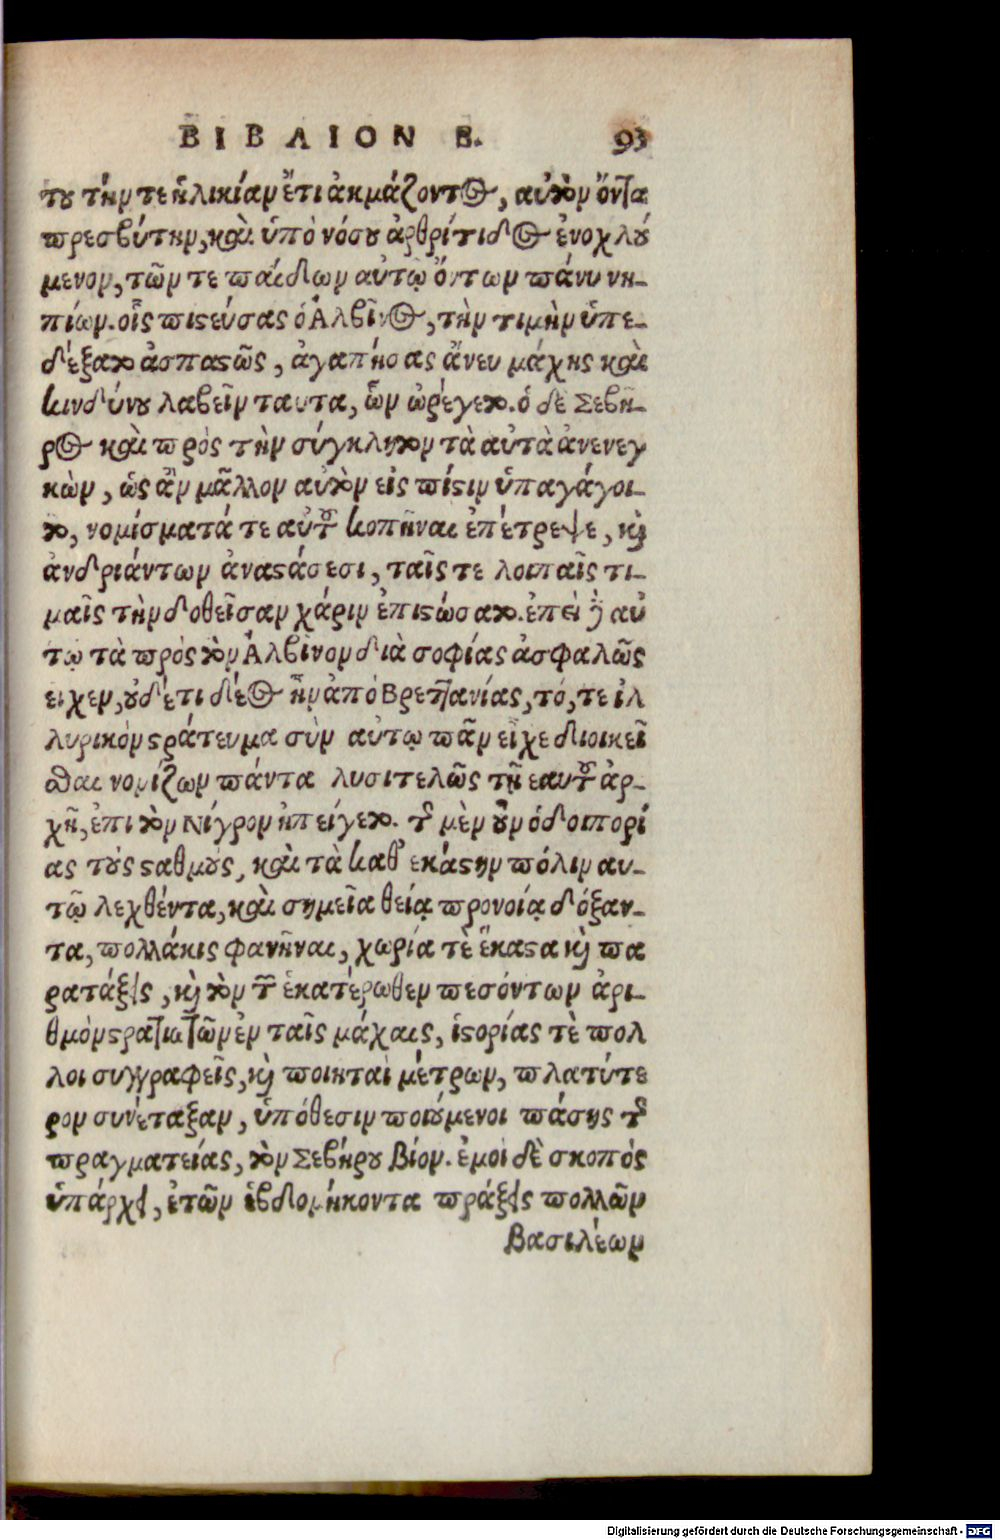 ΒΙΒΛΙΟΝ Β. 93
του τήν τε ἡλικίαν ἔτι ἀκμάζοντος, αὐτὸν ὄντα
πρεσβύτην, καὶ ὑπὸ νόσου ἀρθρίτιδος ἐνοχλού
μενον, τῶν τε παίδων αὐτῷ ὄντων πάνυ νη-
πίων. οἷς πιστεύσας ὁ Ἀλβῖνος, τὴν τιμὴν ὑπε-
δέξατο ἀσπαστῶς, ἀγαπήσας ἄνευ μάχης καὶ
κινδύνου λαβεῖν ταυτα, ὧν ὠρέγετο. ὁ δὲ Σεβῆ-
ρος καὶ πρὸς τὴν σύγκλητον τὰ αὐτὰ ἀνενεγ
κὼν, ὡς ἂν μᾶλλον αὐτὸν εἰς πίστιν ὑπαγάγοι-
το, νομίσματά τε αὐτοῦ κοπῆναι ἐπέτρεψε, καὶ
ἀνδριάντων ἀναστάσεσι, ταῖς τε λοιπαῖς τι-
μαῖς τὴν δοθεῖσαν χάριν ἐπιστώσατο. ἐπεὶ δὲ αὐ
τῳ τὰ πρὸς τὸν Ἀλβῖνον διὰ σοφίας ἀσφαλῶς
ειχεν, οὐδέ τι δέος ἦν ἀπὸ Βρεττανίας, τό, τε ἰλ
λυρικὸν στράτευμα σὺν αὐτῳ πᾶν εἶχε διοικεῖ
σθαι νομίζων πάντα λυσιτελῶς τῇ εαυτοῦ ἀρ-
χῇ, ἐπι τὸν Νίγρον ἠπείγετο. τῆς μὲν οὖν ὁδοιπορί
ας τοὺς σταθμοὺς, καὶ τὰ καθ' εκάστην πόλιν αυ-
τῷ λεχθέντα, καὶ σημεῖα θείᾳ προνοίᾳ δόξαν-
τα, πολλάκις φανῆναι, χωρία τὲ ἕκαστα καὶ πα
ρατάξεις, καὶ τὸν τῶν ἑκατέρωθεν πεσόντων ἀρι-
θμὸν στρατιωτῶν ἐν ταῖς μάχαις, ἱστορίας τὲ πολ
λοι συγγραφεῖς, καὶ ποιηταὶ μέτρων, πλατύτε
ρον συνέταξαν, ὑπόθεσιν ποιούμενοι πάσης τῆς
πραγματείας, τὸν Σεβήρου βίον. ἐμοι δὲ σκοπός
ὑπάρχει, ἐτῶν ἑβδομήκοντα πράξεις πολλῶν
βασιλέων
Digitalisierung gefördert durch die Deutsche Forschungsgemeinschaft - DFG